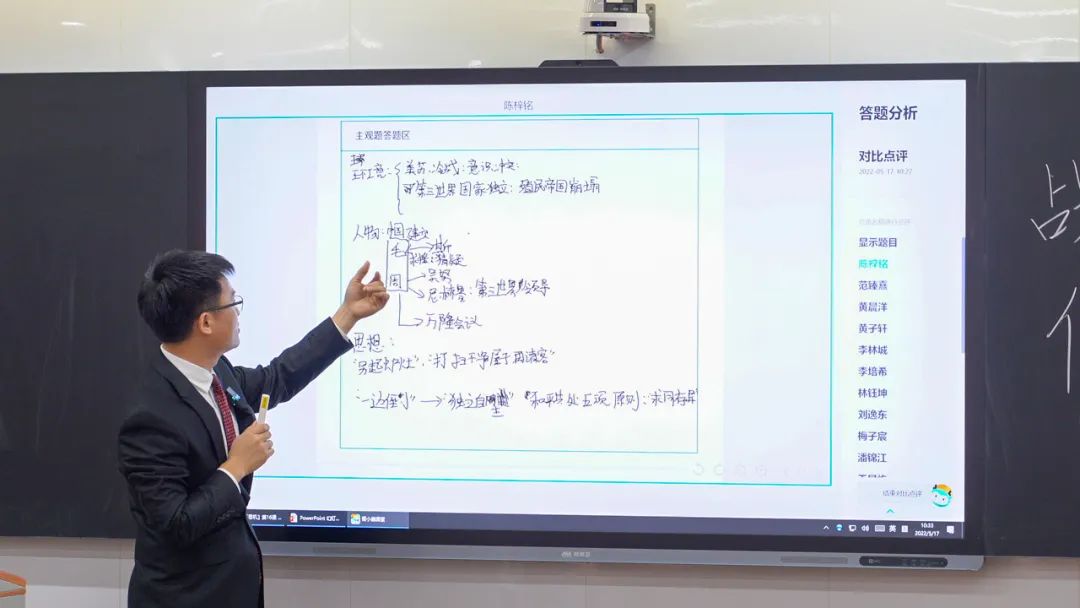 陈梓铭
主观题答题区
环境：美苏冷战：意识冲突
第三世界国家独立：殖民帝国崩塌
人物：中国建设
毛
周
尼赫鲁：第三世界领导
万隆会议
思想：
"另起炉灶"："打扫干净屋子再请客"
"一边倒" → "独立自主" "和平共处五项原则：求同存异
答题分析
对比点评
2022-05-17 10:27
显示题目
陈梓铭
范臻熹
黄晨洋
黄子轩
李林城
李培希
林钰坤
刘逸东
梅子宸
潘锦江
结束对比点评
PowerPoint 幻灯...
英
10:33
2022/5/17
战